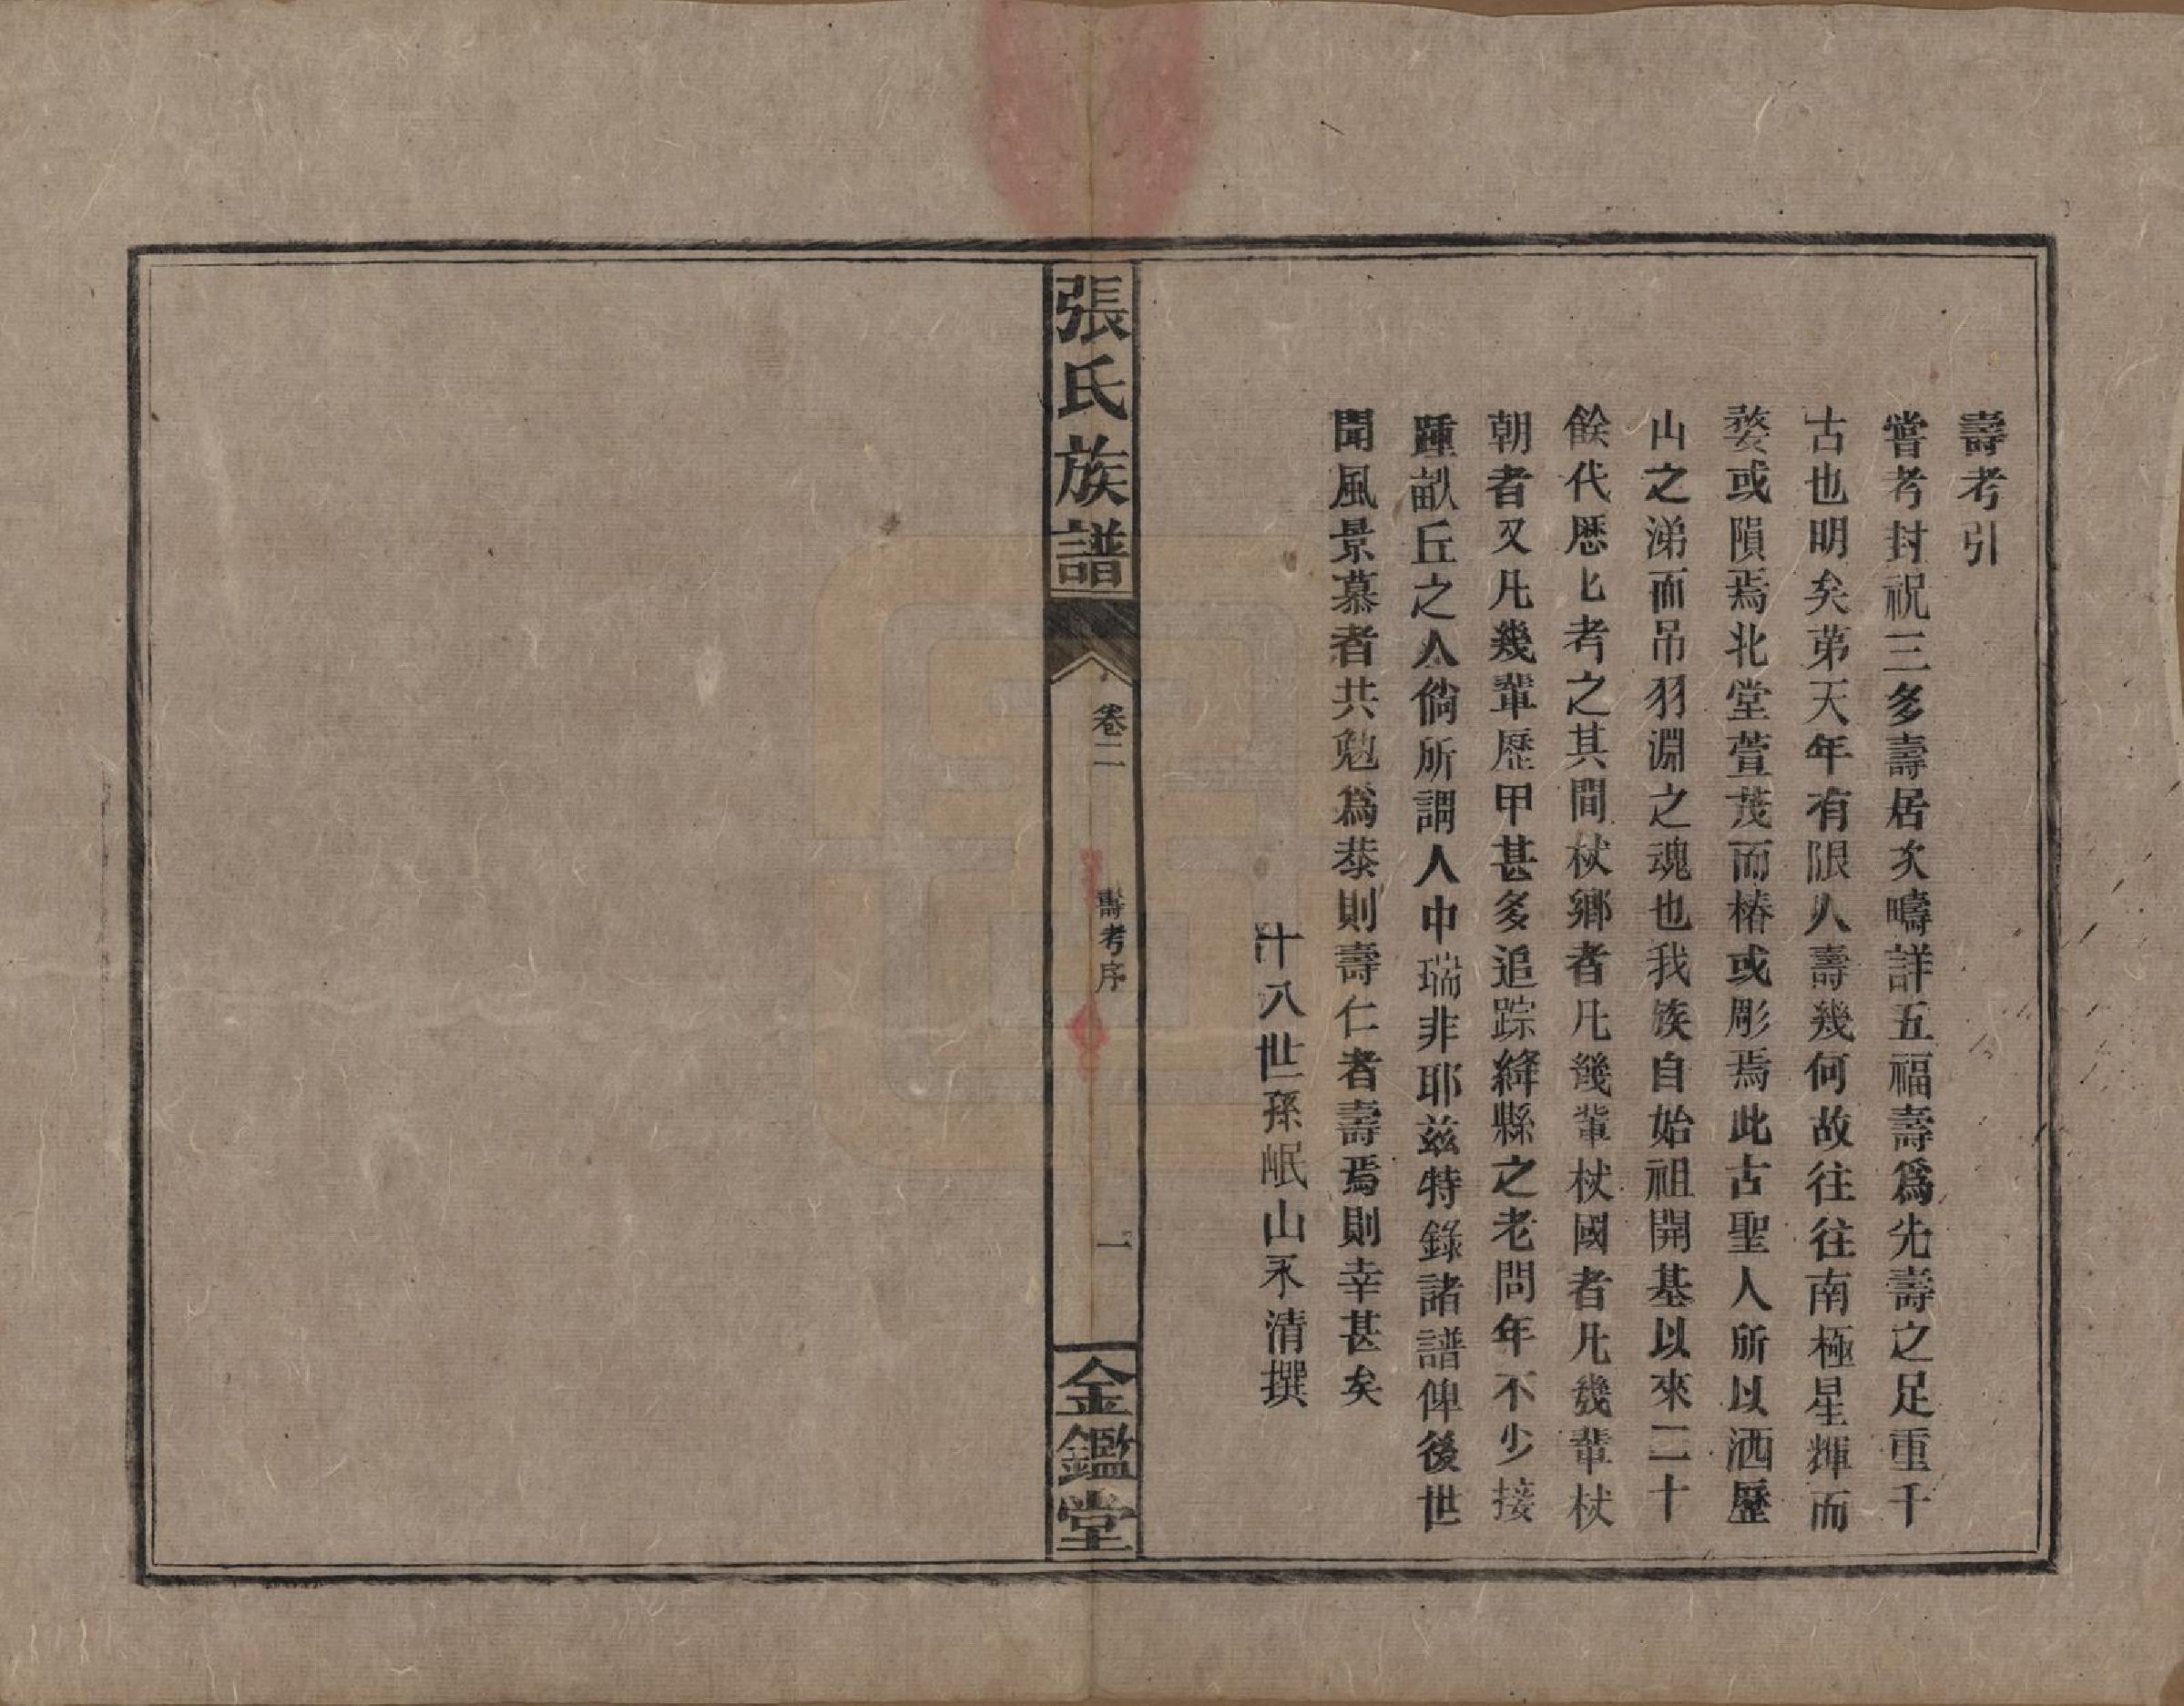 壽考引
嘗考封祝三多壽居次疇詳五福壽爲先壽之足重千
古也明矣苐天年有限人壽幾何故往往南極星輝而
婺或隕焉北堂萱茂而椿或彫焉此古聖人所以洒歷
山之涕而吊羽淵之魂也我族自始祖開基以來二十
餘代歴匕考之其間杖鄉者凡幾輩杖國者凡幾輩杖
朝者又凡幾輩歷甲甚多追踪絳縣之老問年不少接
踵畝丘之人倘所謂人中瑞非耶玆特錄諸譜俾後世
聞風景慕者共勉爲恭則壽仁者壽焉則幸甚矣
十八世孫岷山永清撰
張氏族譜
卷二
壽考序
一
金鑑堂